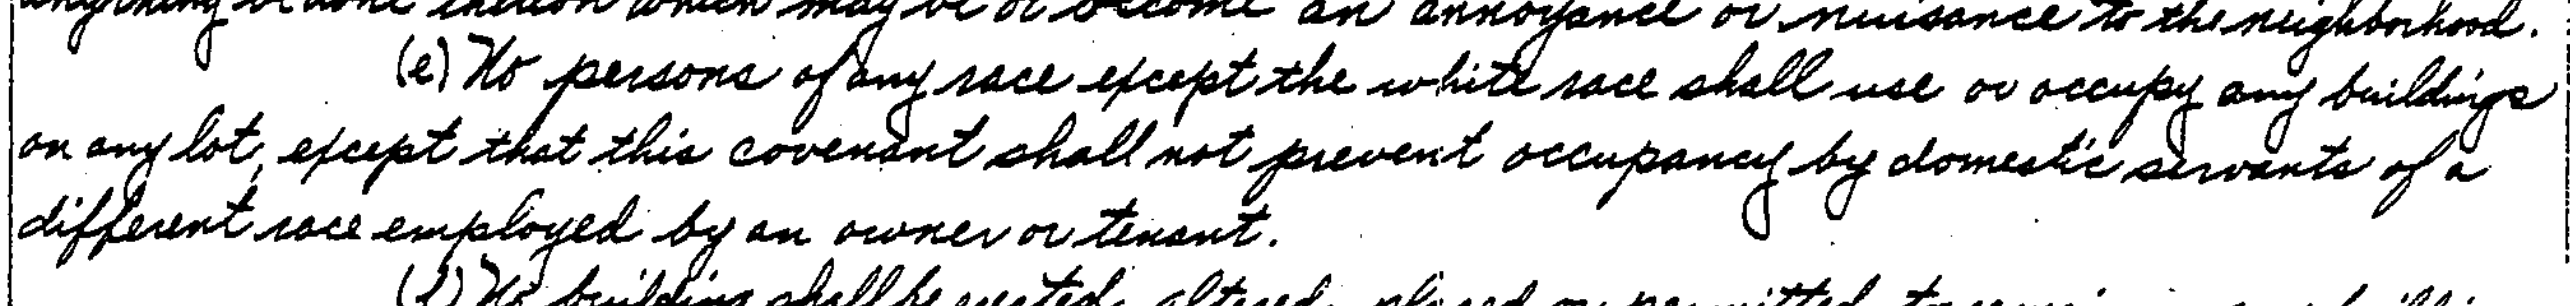 anything be done thereon which may be or become an annoyance or nuisance to the neighborhood.
(e) No persons of any race except the white race shall use or occupy any buildings
on any lot, except that this covenant shall not prevent occupancy by domestic servants of a
different race employed by an owner or tenant.
(f) No building shall be erected, altered, placed or permitted to remain